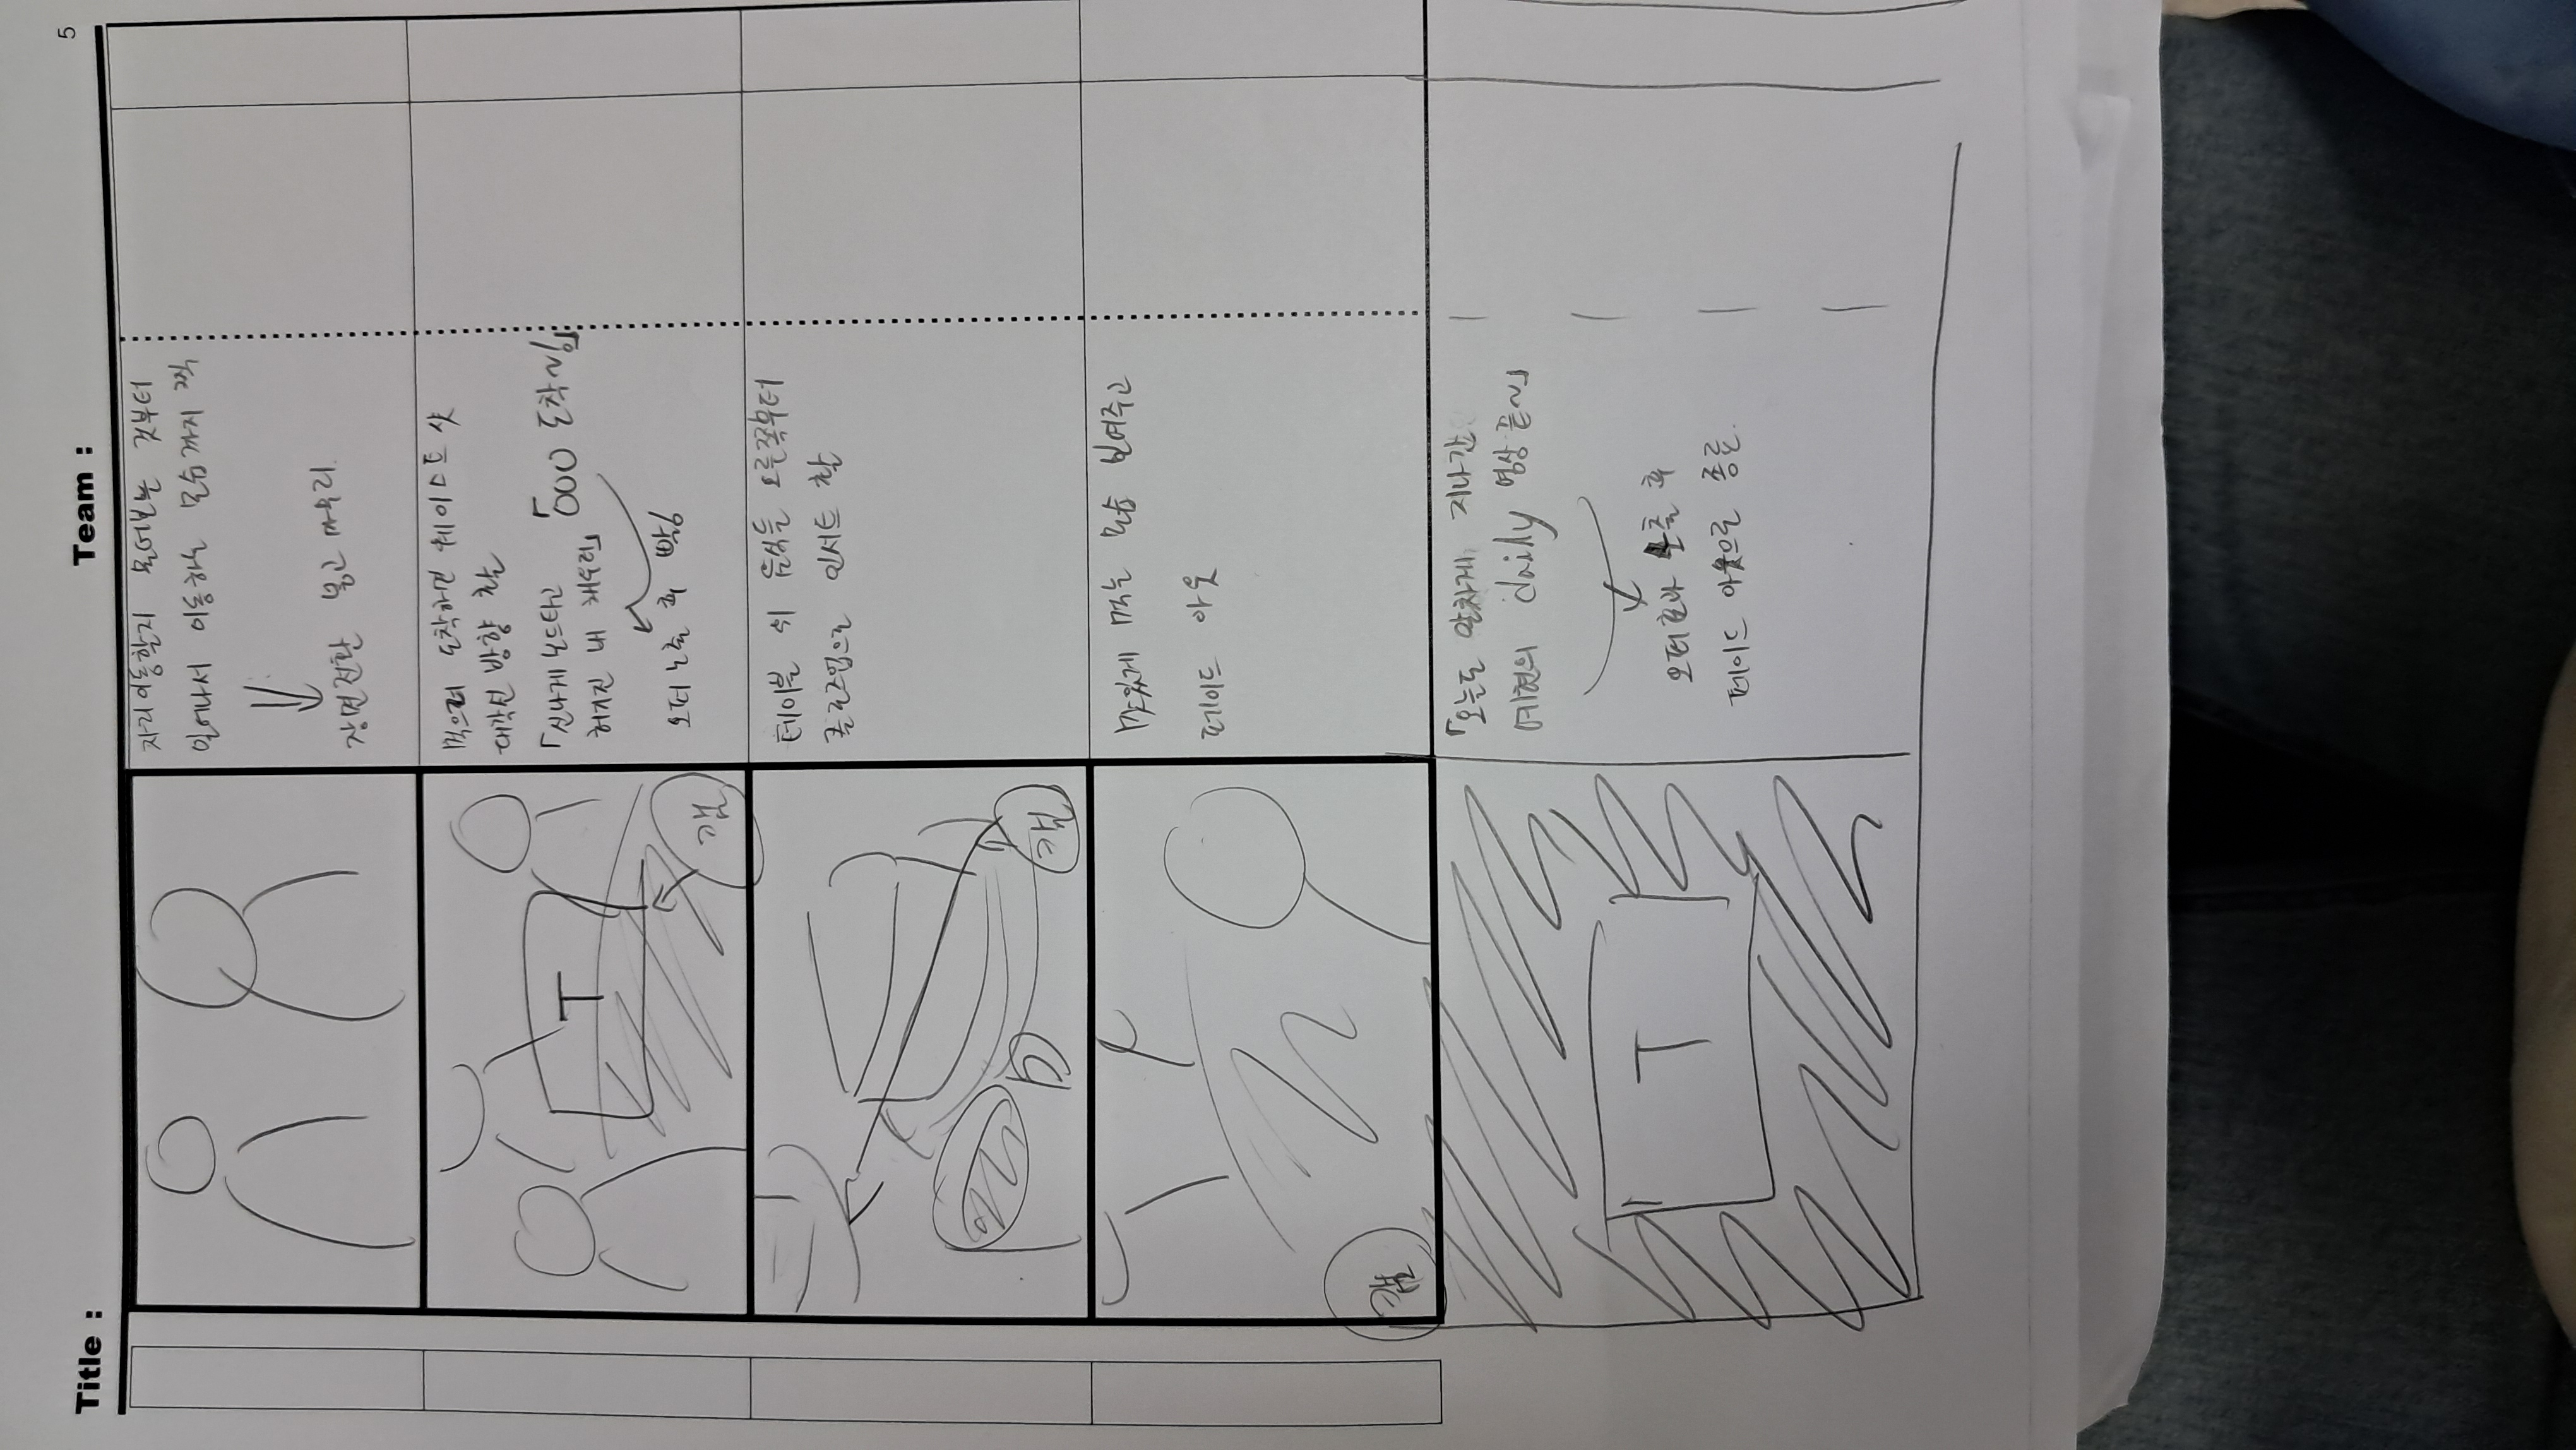 Title :
Team :
5
자리이동할지 물어보는 것부터
일어나서 이동하는 모습까지 찍
장면전환 넣고 마무리.
먹으러 도착하면 웨이스트 샷
대각선 방향 촬
T
「신나게 보드타고
허기진 내 채우러」
「OOO 도착~!」
오퍼 노출 후 빡!
캠
테이블 위 음식들 오른쪽부터
클로즈업으로 인서트 촬
캠
맛있게 먹는 모습 보여주고
페이드 아웃
캠
「오늘도 알차게 지나간
예현의 daily 영상 끝~」
T
오퍼효과 노출 후
페이드 아웃으로 종료.